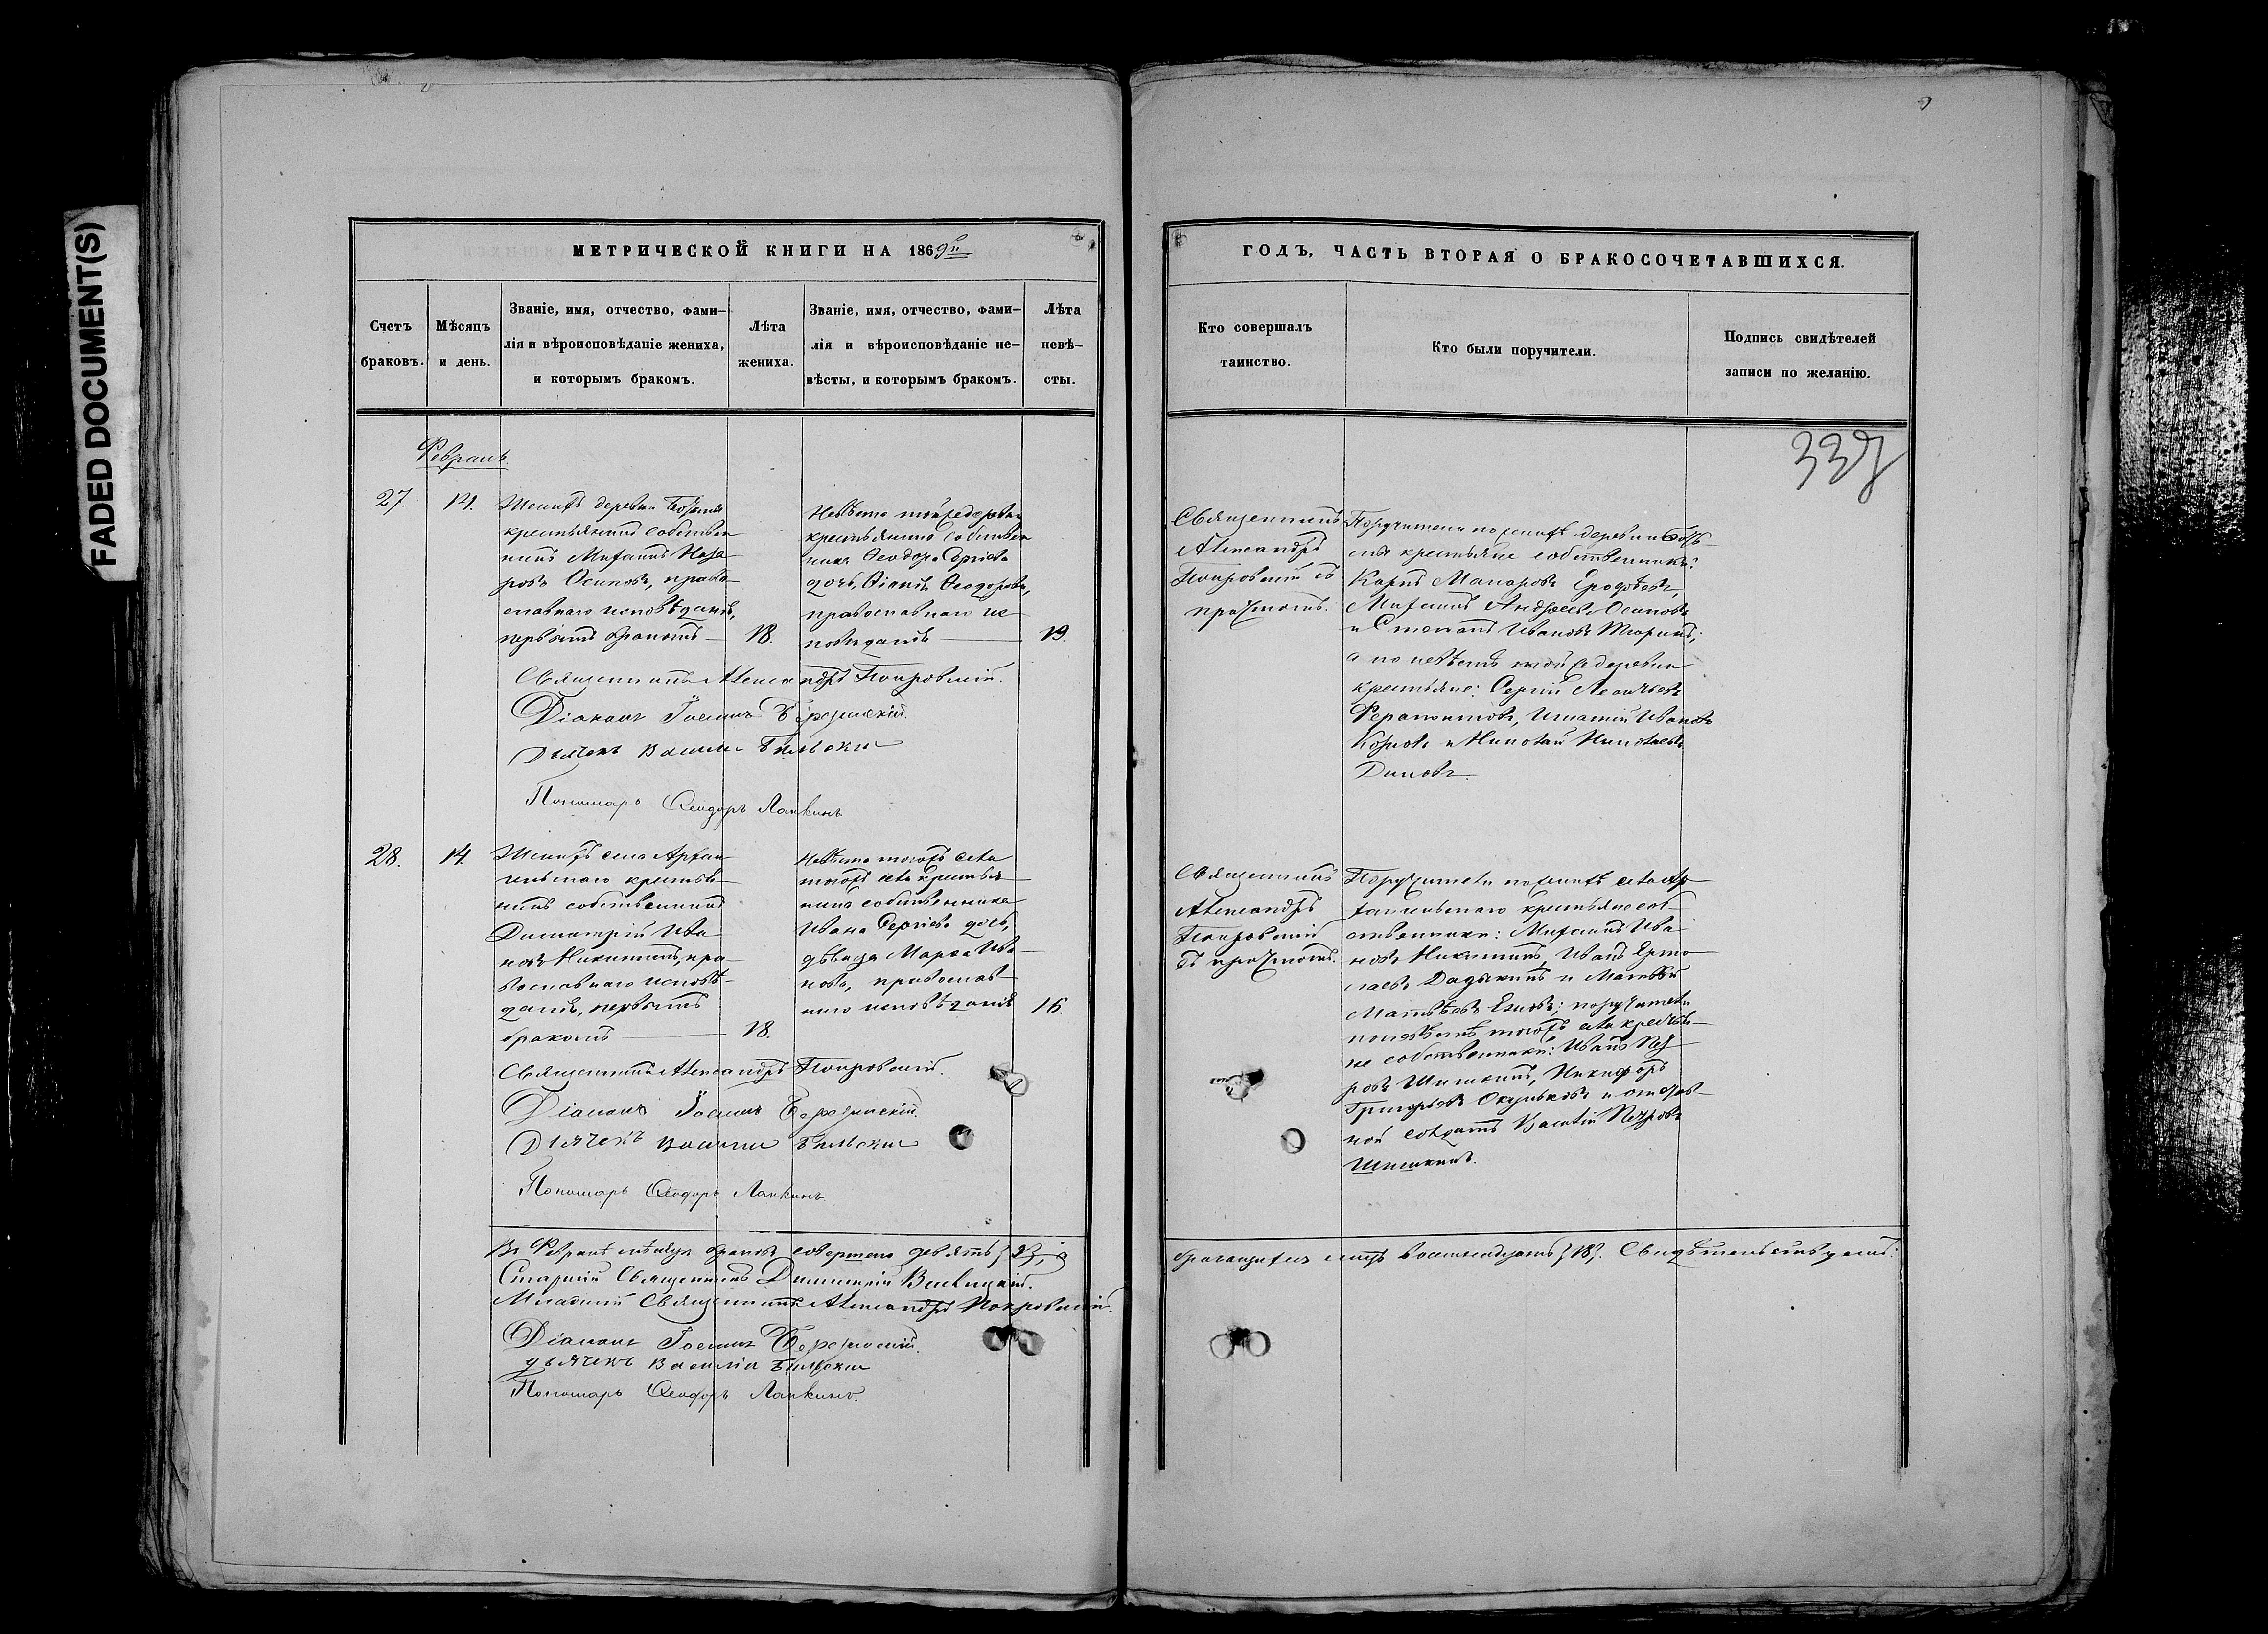 FADED DOCUMENT(S)
МЕТРИЧЕСКОЙ КНИГИ НА 1869й
Счетъ браковъ.
Мѣсяцъ и день.
Званіе, имя, отчество, фами-
лія и вѣроисповѣданіе жениха,
и которымъ бракомъ.
Лѣта
жениха.
Званіе, имя, отчество, фами-
лія и вѣроисповѣданіе не-
вѣсты, и которымъ бракомъ.
Лѣта
невѣ-
сты.
Февраль.
27.
14.
Женихъ деревни
крестьянинъ собствен
никъ Михаилъ Наза
ровъ Осиповъ, право-
славнаго исповѣданія,
первымъ бракомъ
18.
Невѣста той же деревни
крестьянина собствен
ника Ѳеодора Сергіева
дочь, Ѳеодорова,
православнаго ис
повѣданія
19.
Священникъ Александръ Покровскій.
Діаконъ Іоаннъ
Дьячекъ Василій
Пономарь Ѳеодоръ Лапкинъ
28.
14.
Женихъ села Архан-
гельскаго крестья-
нинъ собственникъ
Димитрій Ива-
новъ Никитинъ, пра-
вославнаго исповѣ-
данія, первымъ
бракомъ
18.
Невѣста тогожъ села
тогожъ села крестья-
нина собственника
Ивана Сергіева дочь,
дѣвица Марѳа Ива-
нова, православ-
наго исповѣданія
16.
Священникъ Александръ Покровскій.
Діаконъ Іоаннъ
Дьячекъ Василій
Пономарь Ѳеодоръ Лапкинъ
Въ Февралѣ мѣсяцѣ браковъ совершено девять {9},
Старшій Священникъ Димитрій
Младшій Священникъ Александръ Покровскій.
Діаконъ Іоаннъ
дьячекъ Василій
Пономарь Ѳеодоръ Лапкинъ.
ГОДЪ, ЧАСТЬ ВТОРАЯ О БРАКОСОЧЕТАВШИХСЯ.
Кто совершалъ
таинство.
Кто были поручители.
Подпись свидѣтелей
записи по желанію.
Священникъ
Александръ
Покровскій съ
причтомъ.
Поручители по женихѣ деревни
крестьяне собственники:
Карпъ Макаровъ
Михаилъ Андреевъ Осиповъ
и Степанъ Ивановъ Тюринъ;
а по невѣстѣ той же деревни
крестьяне: Сергій
Ферапонтовъ, Игнатій Ивановъ
и Николай Николаевъ
Священникъ
Александръ
Покровскій
съ причтомъ.
Поручители по женихѣ села Ар-
хангельскаго крестьяне соб-
ственники: Михаилъ Ива
новъ Никитинъ, Иванъ Ермо
лаевъ Дадыкинъ и Матвѣй
Матвѣевъ; поручители
по невѣстѣ тогожъ села крестья-
не собственники: Иванъ Пет-
ровъ Шишкинъ, Никифоръ
Григорьевъ Окуньковъ и отстав-
ной солдатъ Василій Петровъ
Шишкинъ.
брачащихся лицъ восемнадцать {18}. Свидѣтельствуемъ: